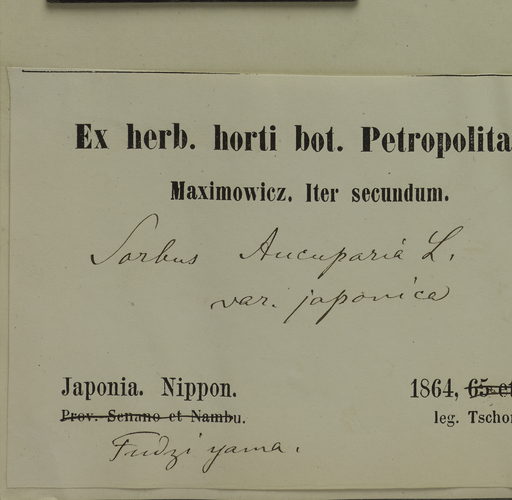 Ex herb. horti bot. Petropolita
Maximowicz. Iter secundum.
Sorbus Aucuparia L.
var. japonica
Japonia. Nippon.
1864, 65 et
Prov. Senano et Nambu.
leg. Tschon
Fudzi yama.